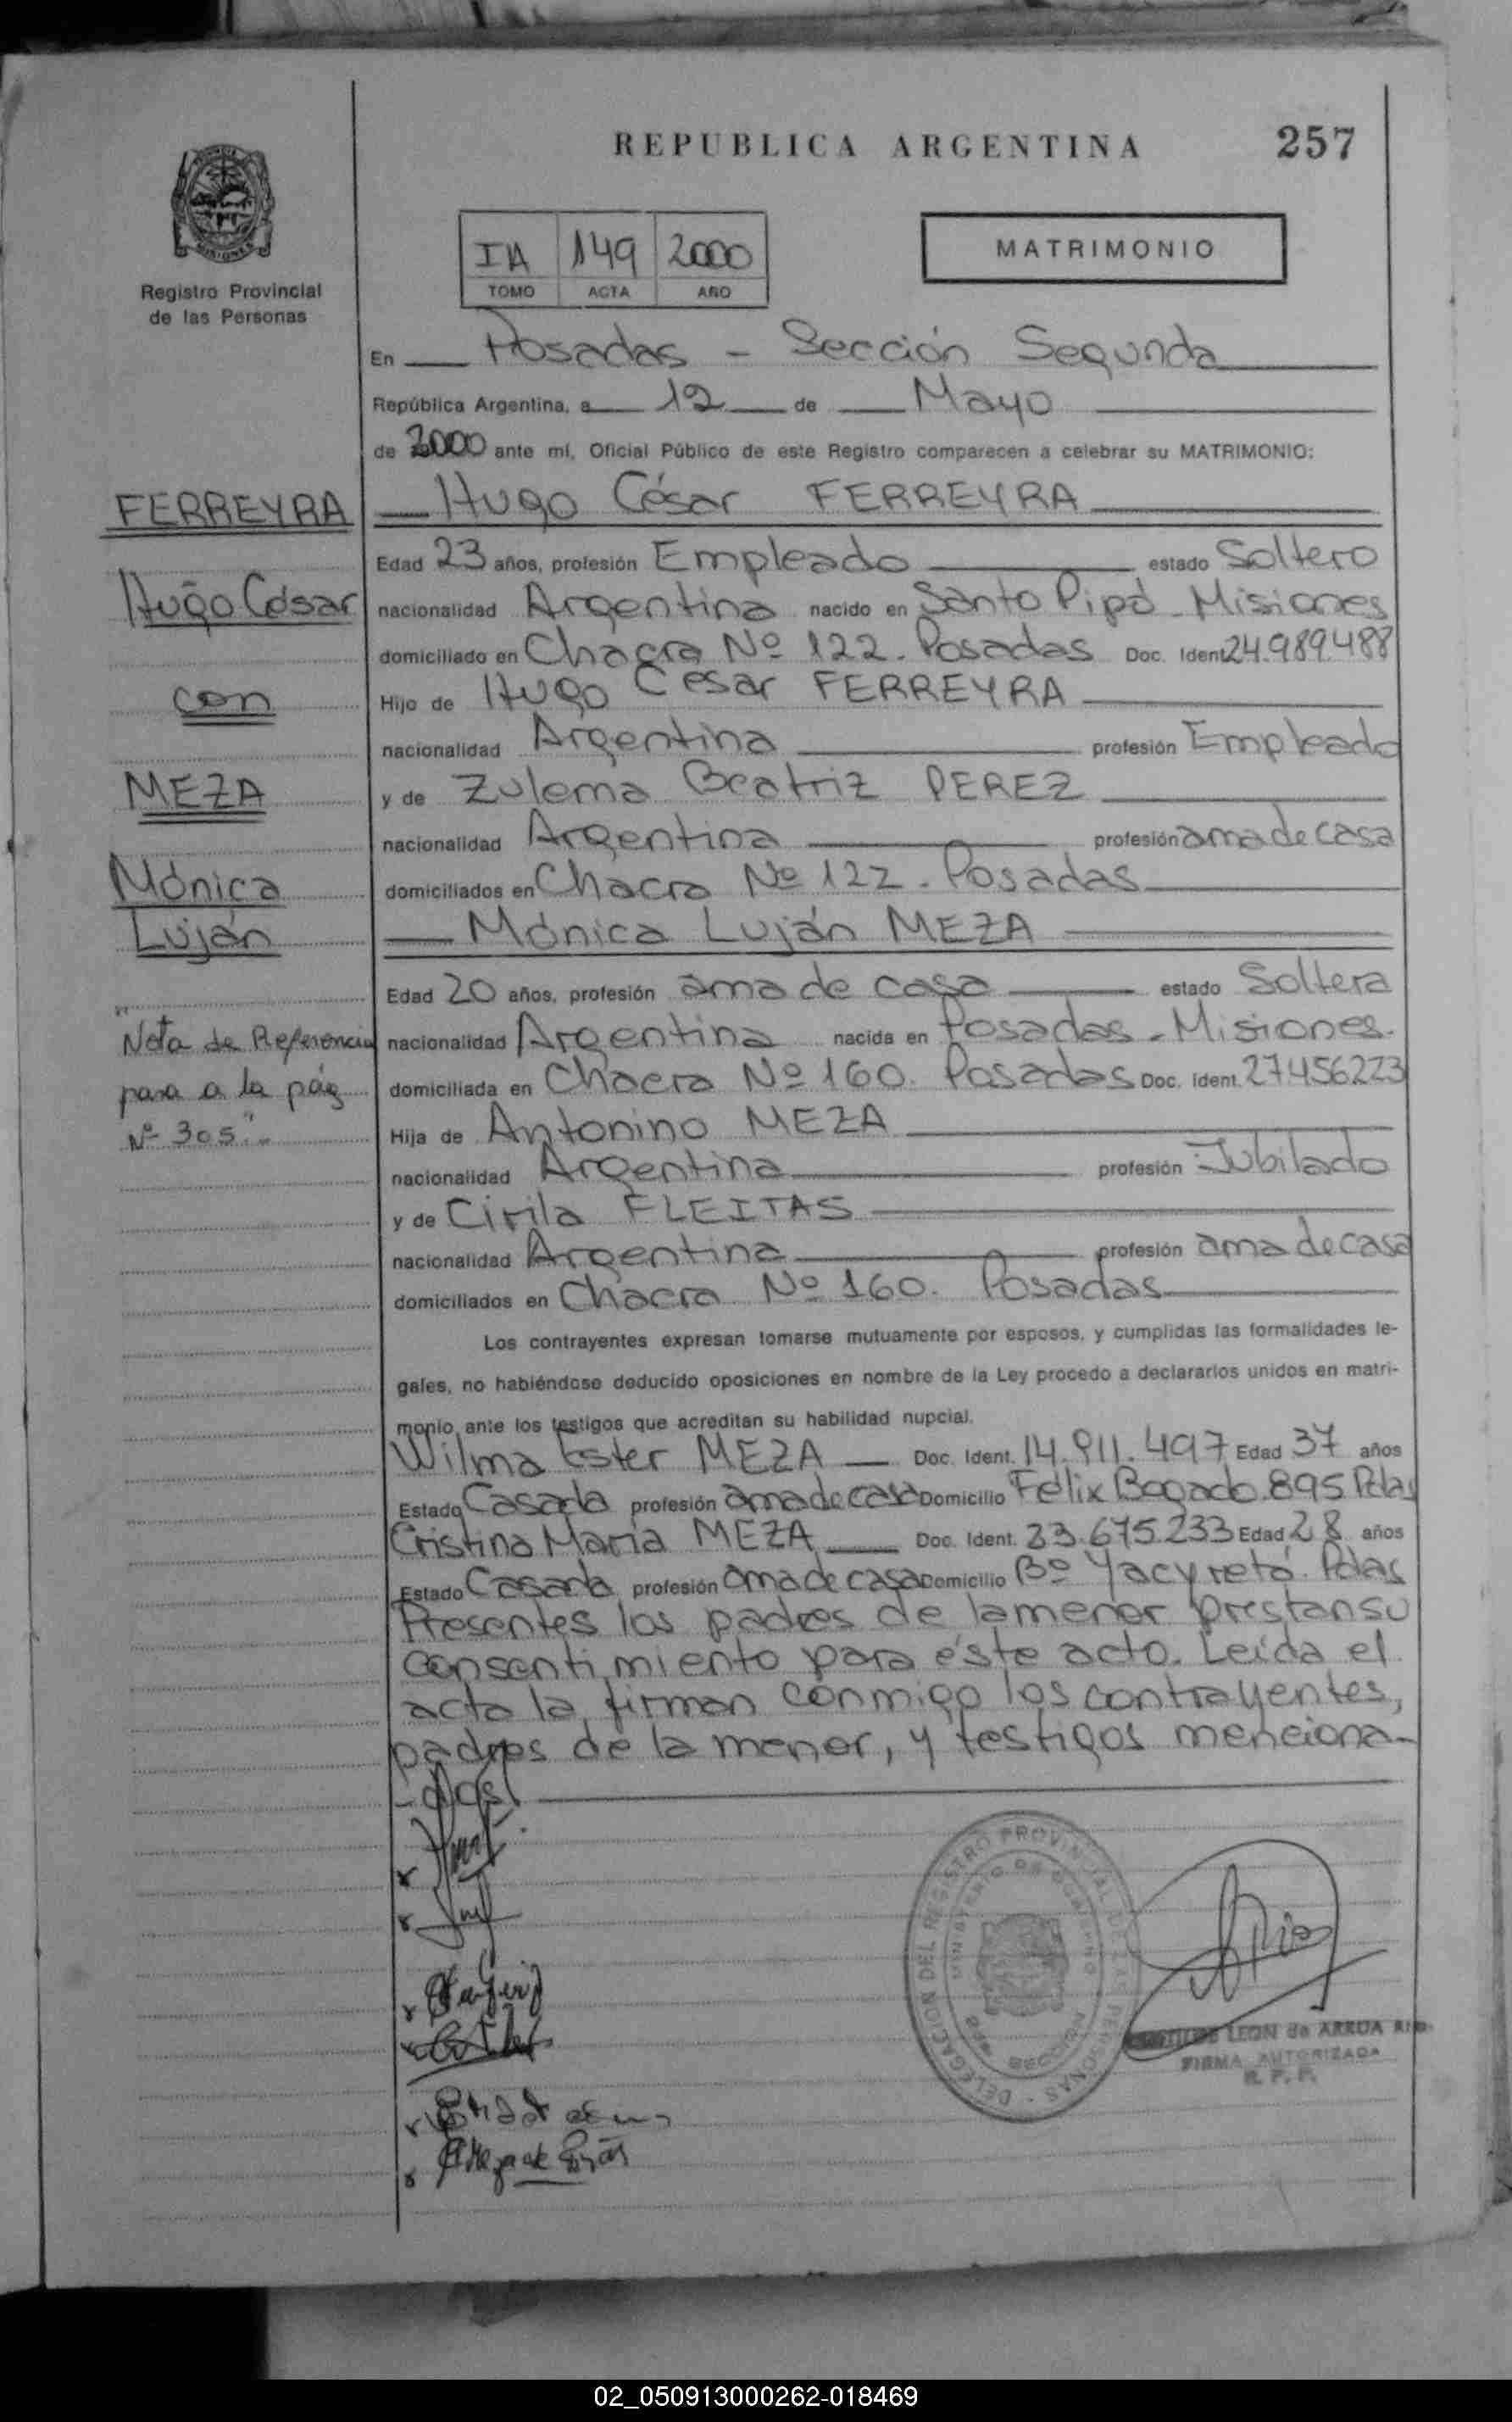 REPUBLICA ARGENTINA 257
Registro Provincial
de las Personas
IA 149 2000
TOMO ACTA AÑO
MATRIMONIO
En Posadas - Sección Segunda
República Argentina, a 12 de Mayo
de 2000 ante mí, Oficial Público de este Registro comparecen a celebrar su MATRIMONIO:
Hugo César FERREYRA
Edad 23 años, profesión Empleado estado Soltero
nacionalidad Argentina nacido en Santo Pipó - Misiones
domiciliado en Chacra Nº 122. Posadas Doc. Ident. 24.989.488
Hijo de Hugo César FERREYRA
nacionalidad Argentina profesión Empleado
y de Zulema Beatriz PEREZ
nacionalidad Argentina profesión ama de casa
domiciliados en Chacra Nº 122 - Posadas
Mónica Luján MEZA
Edad 20 años, profesión ama de casa estado Soltera
nacionalidad Argentina nacida en Posadas - Misiones.
domiciliada en Chacra Nº 160. Posadas Doc. Ident. 27456223
Hija de Antonino MEZA
nacionalidad Argentina profesión Jubilado
y de Cirila FLEITAS
nacionalidad Argentina profesión ama de casa
domiciliados en Chacra Nº 160. Posadas
Los contrayentes expresan tomarse mutuamente por esposos, y cumplidas las formalidades le-
gales, no habiéndose deducido oposiciones en nombre de la Ley procedo a declararlos unidos en matri-
monio ante los testigos que acreditan su habilidad nupcial.
Wilma Ester MEZA Doc. Ident. 14.911.497 Edad 37 años
Estado Casada profesión ama de casa Domicilio Félix Bogado 895 Pdas
Cristina María MEZA Doc. Ident. 23.675.233 Edad 28 años
Estado Casada profesión ama de casa Domicilio Bº Yacyretá. Pdas
Presentes los padres de la menor prestan su
consentimiento para éste acto. Leída el
acta la firman conmigo los contrayentes,
padres de la menor, y testigos menciona-
-dos.
FERREYRA
Hugo César
con
MEZA
Mónica
Luján
"Nota de Referencia
pasa a la pág
Nº 305"
DELEGACION DEL REGISTRO PROVINCIAL DE LAS PERSONAS
MINISTERIO DE GOBIERNO
LEON de ARRUA
FIRMA AUTORIZADA
R. P. P.
02_050913000262-018469